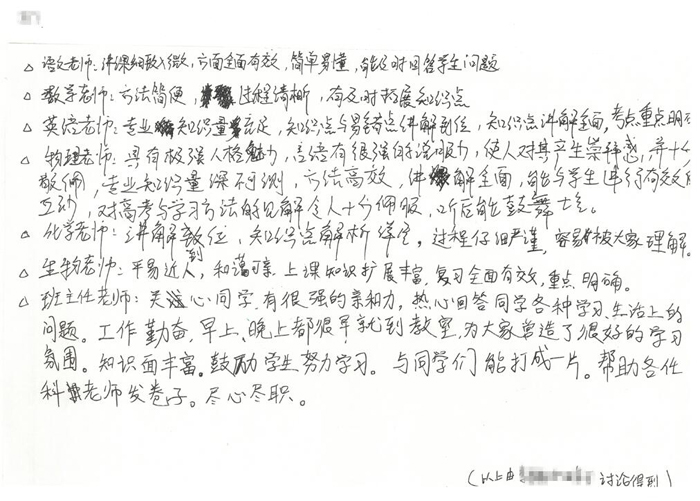 △ 语文老师：讲课细致入微，方面全面有效，简单易懂，能及时回答学生问题
△ 数学老师：方法简便，过程清晰，有及时拓展知识点
△ 英语老师：专业知识量充足，知识点与易错点讲解到位，知识点讲解全面，考点重点明确
△ 物理老师：具有极强人格魅力，言语有很强的说服力，使人对其产生崇拜感，并十分
敬佩，专业知识量深不可测，方法高效，讲解全面，能与学生进行有效的
互动，对高考与学习方法的见解令人十分佩服，听后能鼓舞士气。
△ 化学老师：讲解到位，知识点解析详尽，过程仔细严谨，容易被大家理解。
△ 生物老师：平易近人，和蔼可亲，上课知识扩展丰富，复习全面有效，重点明确。
△ 班主任老师：关心同学，有很强的亲和力，热心回答同学各种学习、生活上的
问题。工作勤奋，早上、晚上都很早就到教室，为大家营造了很好的学习
氛围。知识面丰富。鼓励学生努力学习。与同学们能打成一片。帮助各任
科老师发卷子。尽心尽职。
（以上由 讨论得到）